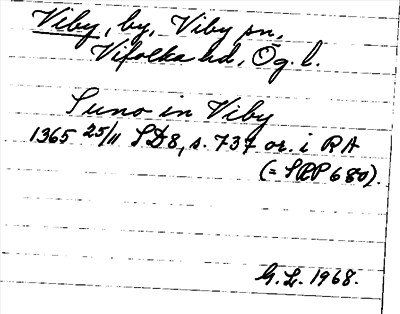 Viby, by, Viby sn,
Vifolka hd, Ög. l.
Suno in Viby
1365 25/11 SD8, s. 737 or. i RA
(= SRP 680).
G. L. 1968.